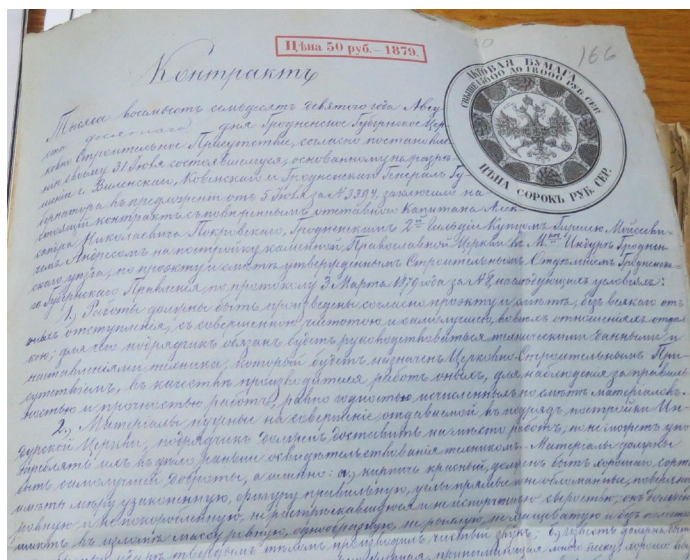 Цѣна 50 руб. — 1879.
166
АКТОВАЯ БУМАГА
СВЫШЕ 15000 ДО 18000 РУБ. СЕР.
ЦѢНА СОРОКЪ РУБ. СЕР.
Контрактъ
Тысяча восемьсотъ семьдесятъ девятого года Авгу-
ста дня Гродненское Губернское Цер-
ковно Строительное Присутствіе, согласно постановле-
нію своему 31 Іюля состоявшемуся, основанному на разрѣ-
шеніи г. Виленскаго, Ковенскаго и Гродненскаго Генералъ Гу-
бернатора въ предложеніи отъ 5 Іюля за № 3394, заключило на-
стоящій контрактъ съ повѣреннымъ отставного Капитана Алек-
сандра Николаевича Покровскаго, Гродненскимъ 2й Гильдіи Купцомъ Гиршею Мойсееви-
чемъ на постройку каменной Православной Церкви въ Мѣст. Индурѣ Гроднен-
скаго уѣзда, по проэкту и смѣтѣ утвержденнымъ Строительнымъ Отдѣленіемъ Гродненска-
го Губернскаго Правленія по протоколу 3 Марта 1879 года за № 8, на слѣдующихъ условіяхъ:
1, Работы должны быть произведены согласно проэкту и смѣтѣ, безъ всякаго отъ
оныхъ отступленія, съ совершенною чистотою и наилучшею во всѣхъ отношеніяхъ отдѣл-
кою; для чего подрядчикъ обязанъ будетъ руководствоваться техническими данными и
наставленіями техника, который будетъ назначенъ Церковно-Строительнымъ При-
сутствіемъ, въ качествѣ производителя работъ оныхъ, для наблюденія за правиль-
ностью и прочностью работъ, равно годностью исчисленныхъ по смѣтѣ матеріаловъ.
2, Матеріалы нужные на совершеніе отдаваемой въ подрядъ постройки Ин-
дурской Церкви, подрядчикъ долженъ доставить на мѣсто работъ, но не можетъ упо-
треблять ихъ въ дѣло, раньше освидѣтельствованія техникомъ. Матеріалы должны
быть наилучшей доброты, а именно: а, кирпичъ красный, долженъ быть хорошаго сорта
имѣть мѣру узаконенную, фигуру правильную, углы прямые и не обломанные, поверхность
ровную и не покоробленную, не растрескавшуюся и не истертую сыростью; онъ долженъ
имѣть въ изломѣ массу ровную, однообразную,
твердымъ тѣломъ производить чистый звукъ; б, известь должна быть